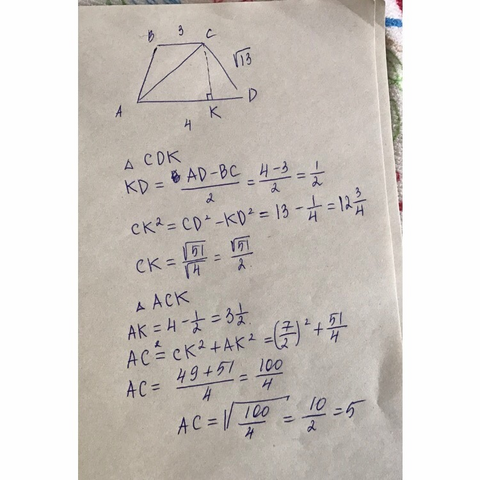 B 3 C
√13
A K D
4
△ CDK
KD = AD-BC/2 = 4-3/2 = 1/2
CK² = CD² - KD² = 13 - 1/4 = 12 3/4
CK = √51/√4 = √51/2
△ ACK
AK = 4 - 1/2 = 3 1/2
AC² = CK² + AK² = (7/2)² + 51/4
AC = 49+51/4 = 100/4
AC = √100/4 = 10/2 = 5